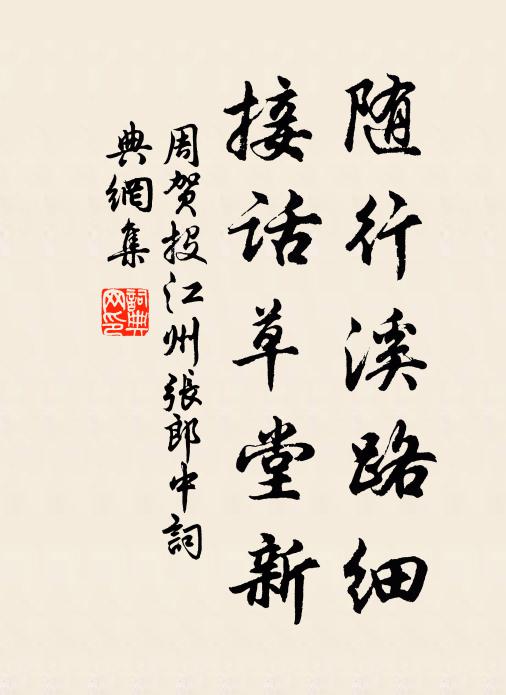 随行溪路细
接话草堂新
周贺投江州張郎中詞
典網集
詞典
网印